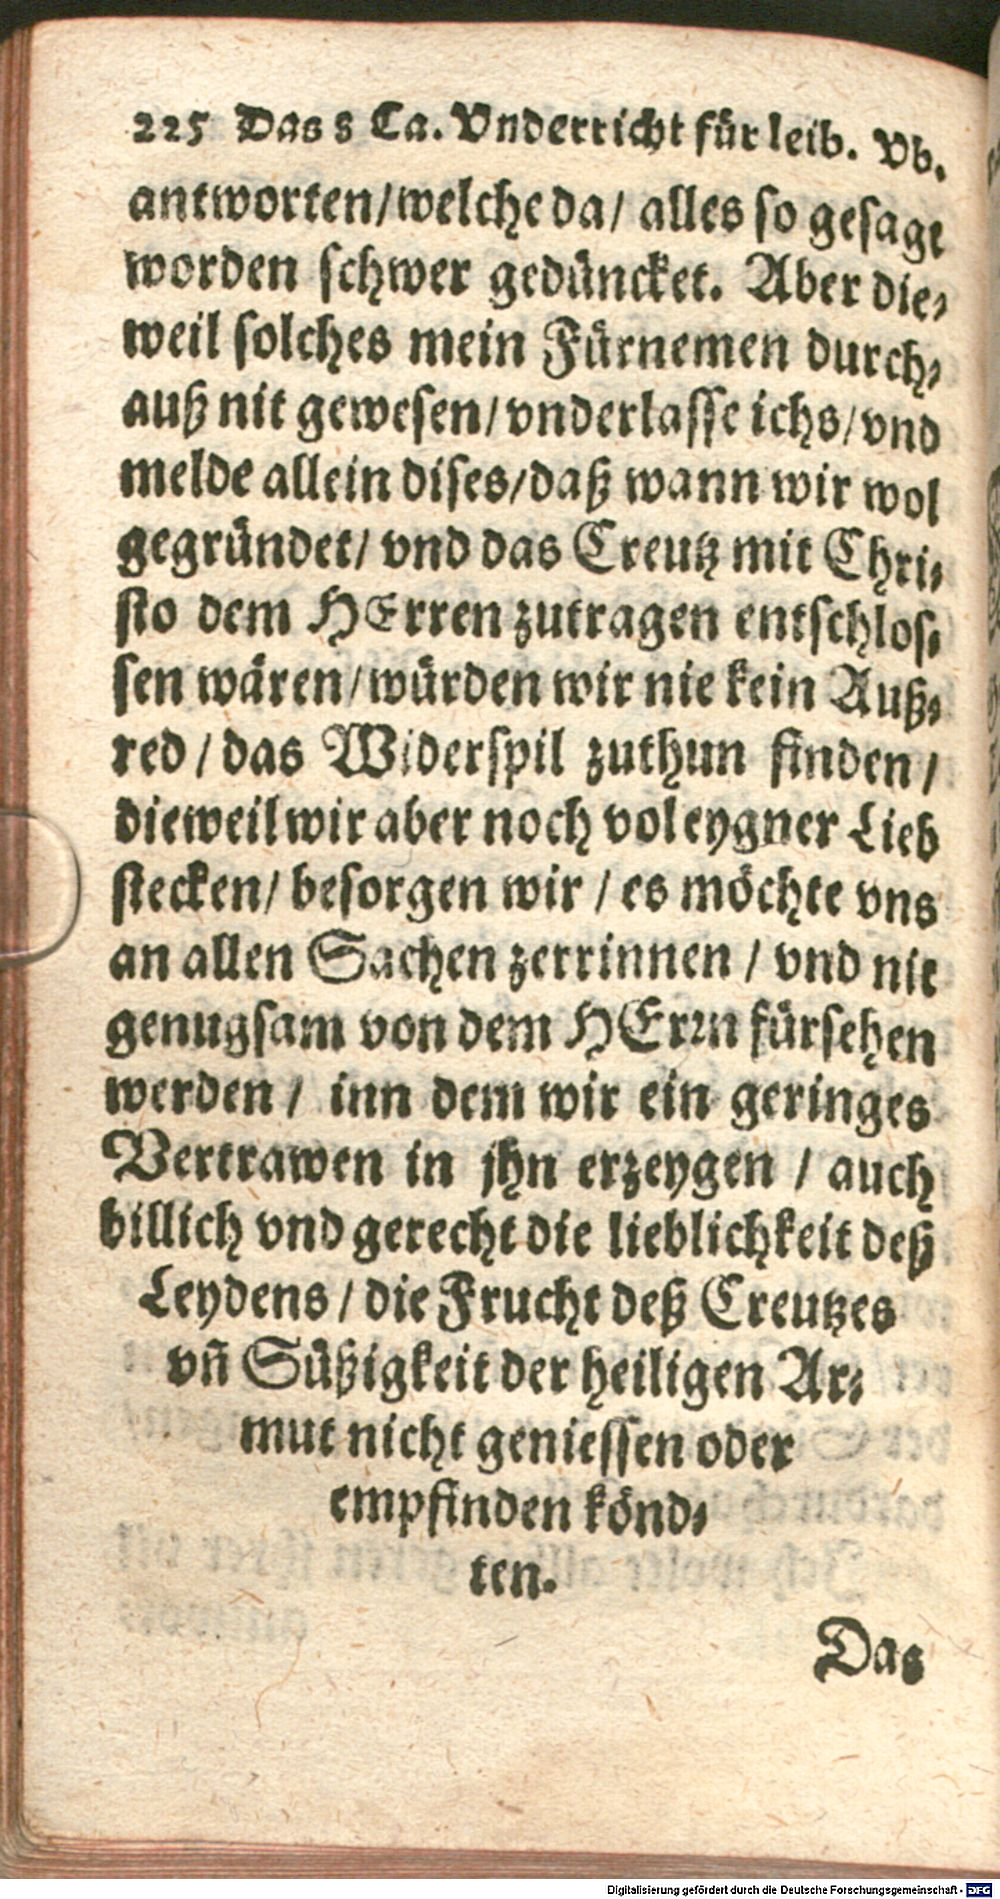 225 Das 8 Ca. Vnderricht für leib. Vb.
antworten/welche da/ alles so gesagt
worden schwer gedüncket. Aber die-
weil solches mein Fürnemen durch-
auß nit gewesen/vnderlasse ichs/vnd
melde allein dises/daß wann wir wol
gegründet/ vnd das Creutz mit Chri-
sto dem HErren zutragen entschlos-
sen wären/würden wir nie kein Auß-
red / das Widerspil zuthun finden /
dieweil wir aber noch vol eygner Lieb
stecken/ besorgen wir / es möchte vns
an allen Sachen zerrinnen / vnd nit
genugsam von dem HErrn fürsehen
werden / inn dem wir ein geringes
Vertrawen in jhn erzeygen / auch
billich vnd gerecht die lieblichkeit deß
Leydens / die Frucht deß Creutzes
vñ Süßigkeit der heiligen Ar-
mut nicht geniessen oder
empfinden könd-
ten.
Das
Digitalisierung gefördert durch die Deutsche Forschungsgemeinschaft - DFG